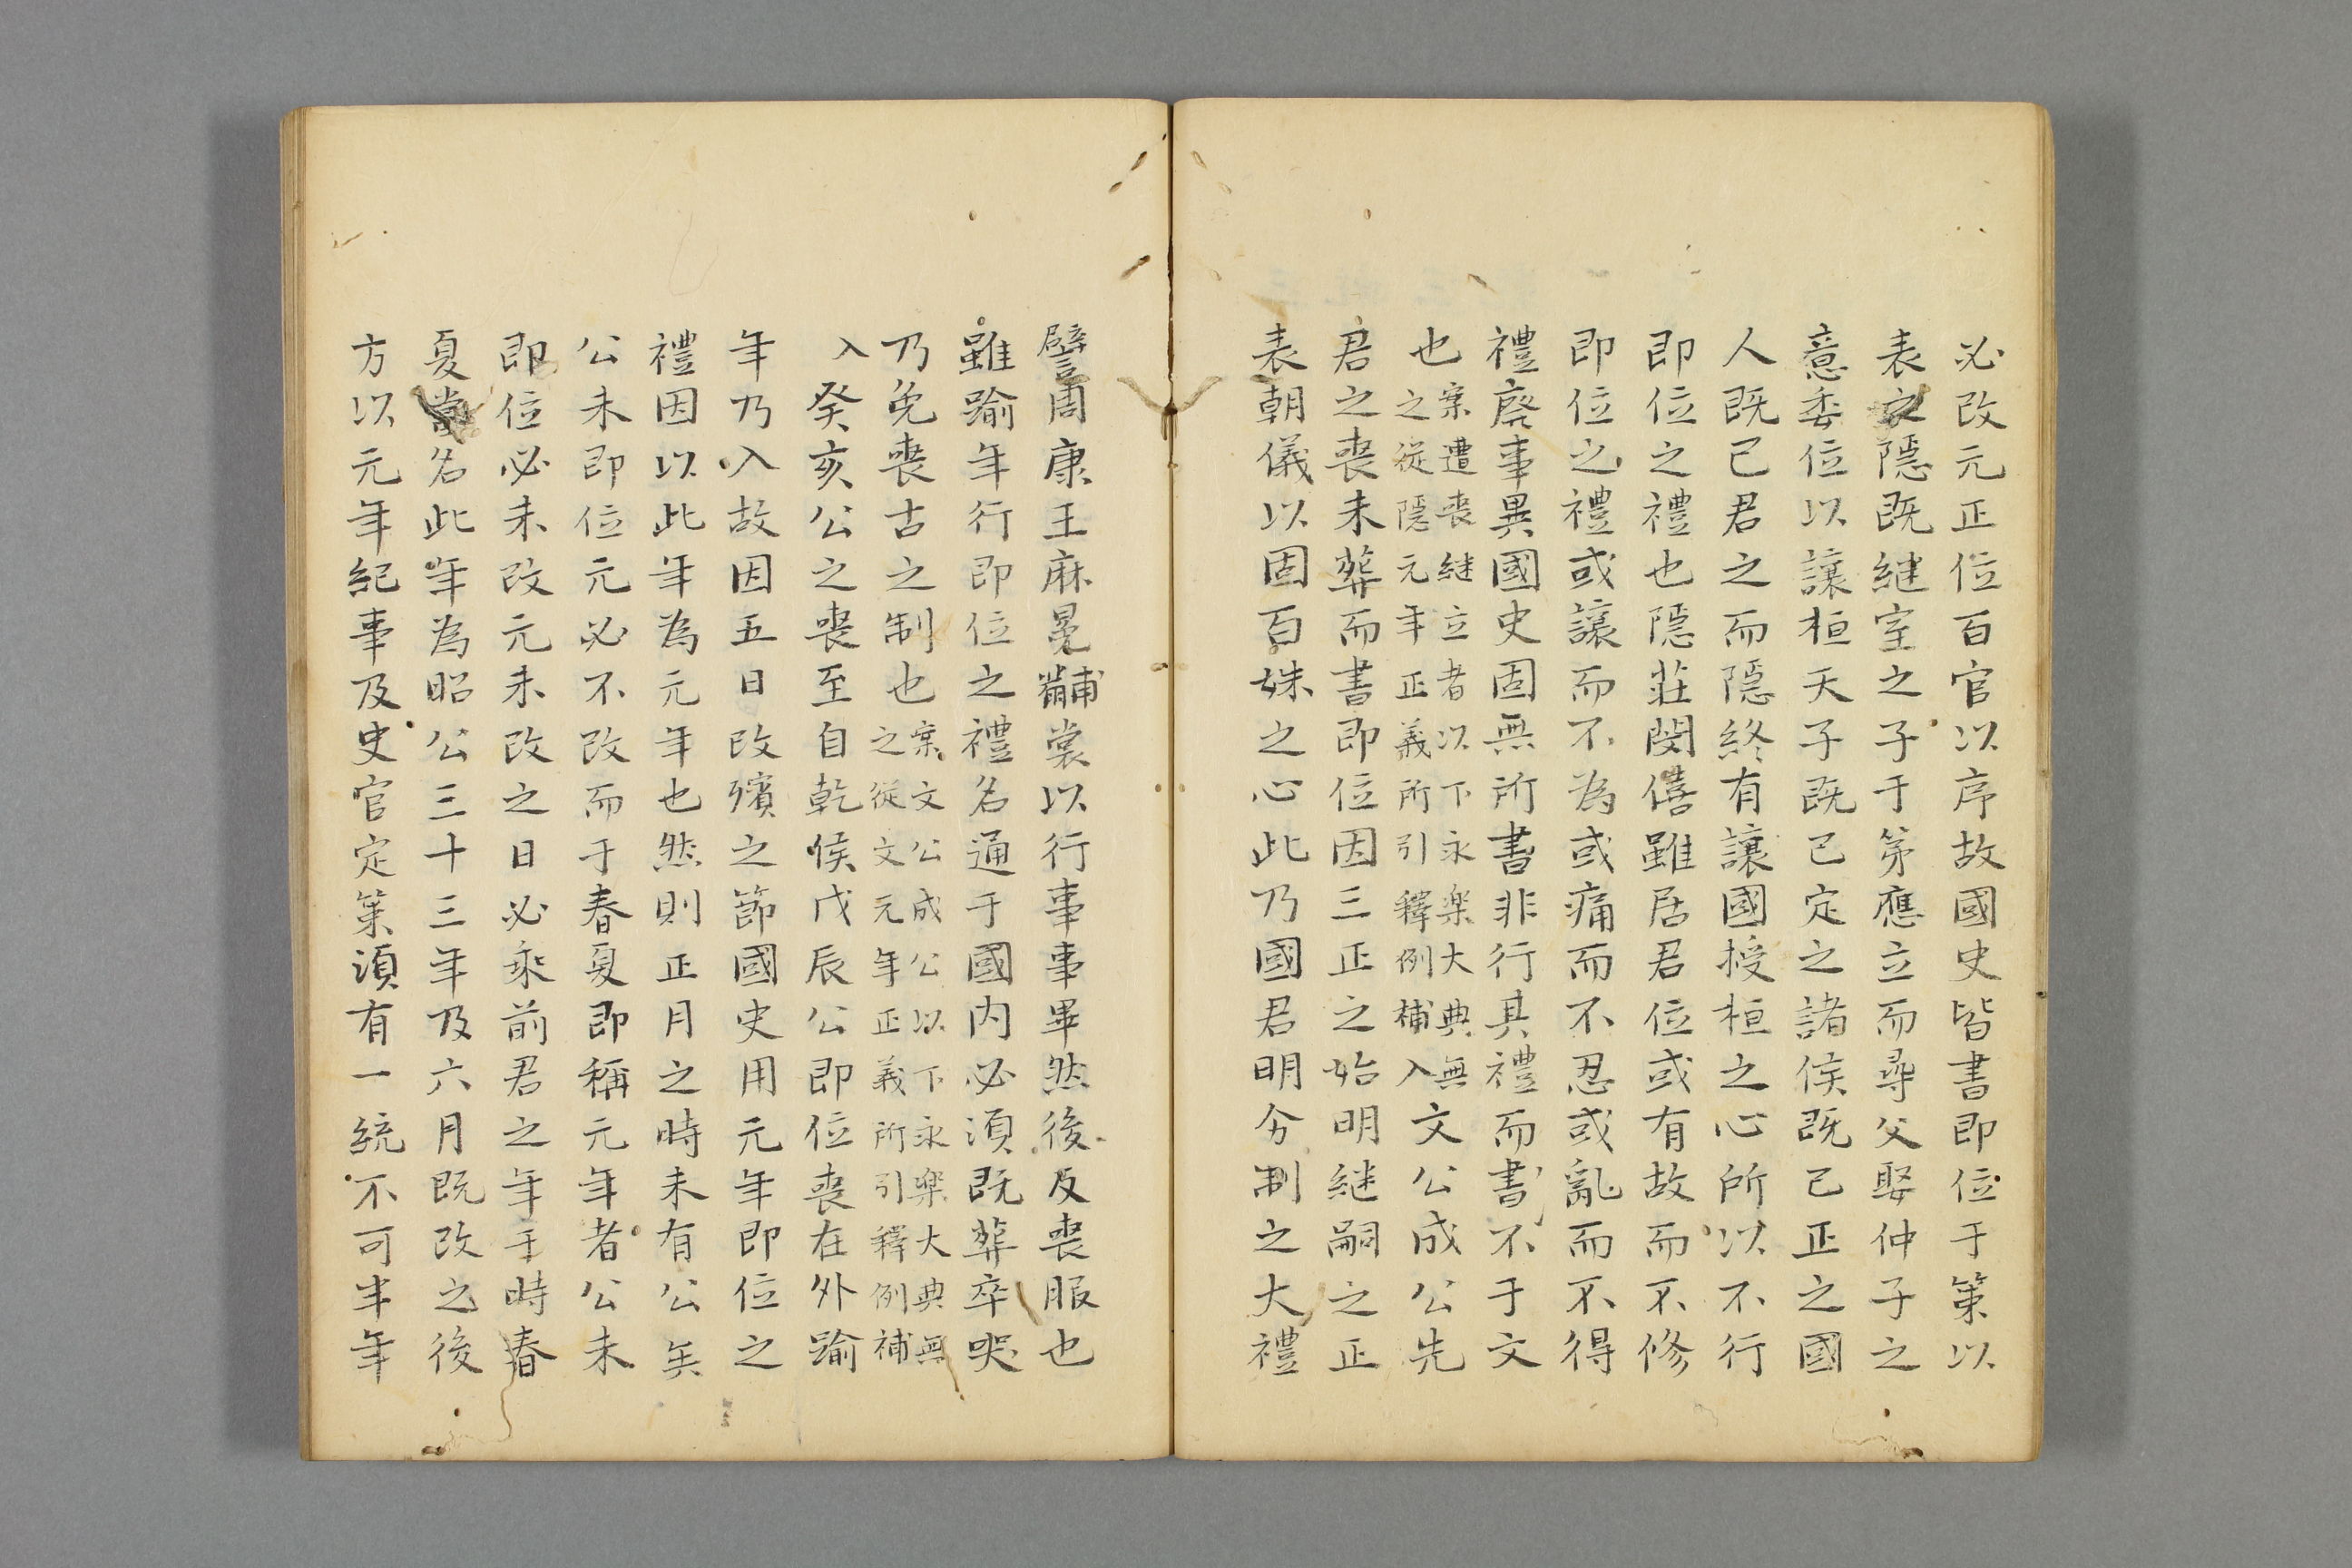 必改元正位百官以序故國史皆書即位于策以
表之隱既継室之子于第應立而尋父娶仲子之
意委位以讓桓天子既已定之諸侯既已正之國
人既已君之而隱終有讓國授桓之心所以不行
即位之禮也隱莊閔僖雖居君位或有故而不修
即位之禮或讓而不為或痛而不忍或亂而不得
禮廢事異國史固無所書非行其禮而書不于文
也案遭喪継立者以下永樂大典無之從隱元年正義所引釋例補入文公成公先
君之喪未葬而書即位因三正之始明継嗣之正
表朝儀以固百姝之心此乃國君明分制之大禮
譬周康王麻冕黼裳以行事事畢然後反喪服也
雖踰年行即位之禮名通于國内必須既葬卒哭
乃免喪古之制也案文公成公以下永樂大典無之從文元年正義所引釋例補
入癸亥公之喪至自乾侯戊辰公即位喪在外踰
年乃入故因五日改殯之節國史用元年即位之
禮因以此年為元年也然則正月之時未有公矣
公未即位元必不改而于春夏即稱元年者公未
即位必未改元未改之日必乘前君之年于時春
夏當名此年為昭公三十三年及六月既改之後
方以元年紀事及史官定策須有一統不可半年